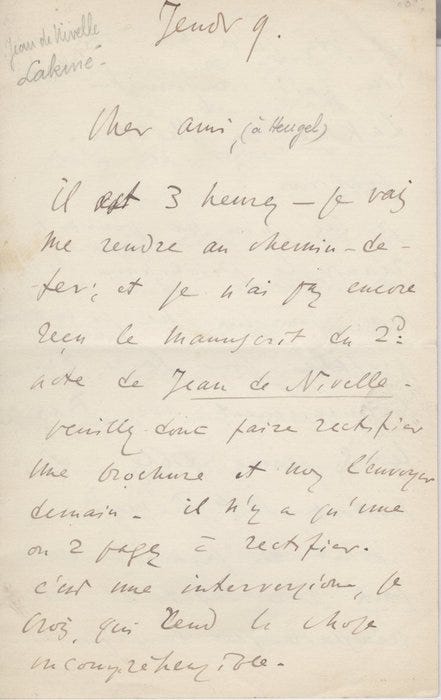 Jeudi 9.
Jean de Nivelle
Lakmé
Cher ami, (à Heugel)
il est 3 heures – je vais
me rendre au chemin-de-
fer; et je n'ai pas encore
reçu le manuscrit du 2d.
acte de Jean de Nivelle.
veuillez donc faire rectifier
une brochure et nous l'envoyer
demain. il n'y a qu'une
ou 2 pages à rectifier.
c'est une interversion, je
crois, qui rend la chose
incompréhensible.